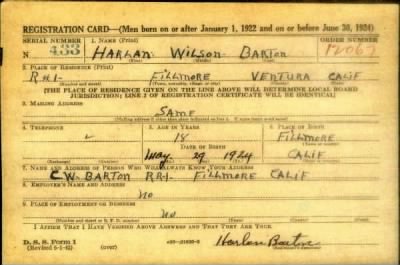 REGISTRATION CARD—(Men born on or after January 1, 1922 and on or before June 30, 1924)
SERIAL NUMBER 1. NAME (Print) ORDER NUMBER
433 HARLAN WILSON BARTON 12067
(First) (Middle) (Last)
2. PLACE OF RESIDENCE (Print)
R#1- FILLMORE VENTURA CALIF
(Number and street) (Town, township, village, or city) (County) (State)
[THE PLACE OF RESIDENCE GIVEN ON THE LINE ABOVE WILL DETERMINE LOCAL BOARD
JURISDICTION; LINE 2 OF REGISTRATION CERTIFICATE WILL BE IDENTICAL]
3. MAILING ADDRESS
SAME
(Mailing address if other than place indicated on line 2. If same insert word same)
4. TELEPHONE 5. AGE IN YEARS 6. PLACE OF BIRTH
18 FILLMORE
DATE OF BIRTH (Town or county)
MAY 29 1924 CALIF
(Exchange) (Number) (Mo.) (Day) (Yr.) (State or country)
7. NAME AND ADDRESS OF PERSON WHO WILL ALWAYS KNOW YOUR ADDRESS
C.W. BARTON RR1- FILLMORE CALIF
8. EMPLOYER'S NAME AND ADDRESS
NO
9. PLACE OF EMPLOYMENT OR BUSINESS
NO
(Number and street or R. F. D. number) (Town) (County) (State)
I AFFIRM THAT I HAVE VERIFIED ABOVE ANSWERS AND THAT THEY ARE TRUE.
D. S. S. Form 1
(Revised 6-1-42) (over) Harlan Barton